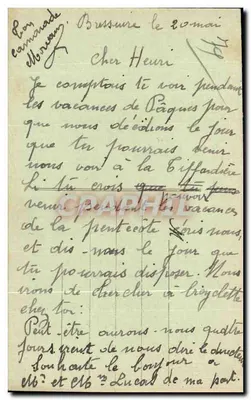 Ton
camarade
Moreau
Bressuire le 20 mai
Cher Henri
Je comptais te voir pendant
les vacances de Pâques pour
que nous décidions le jour
que tu pourrais venir
nous voir à la Tiffardière
Si tu crois que tu peux
venir pendant les vacances
de la pentecôte écris nous
et dis nous le jour que
tu pourrais disposer. Nous
irons te chercher à bicyclette
chez toi.
Peut être aurons-nous quatre
jours vient de nous dire le directeur
Souhaite le bonjour a
Mr et Mme Lucas de ma part.
CPAPHIL